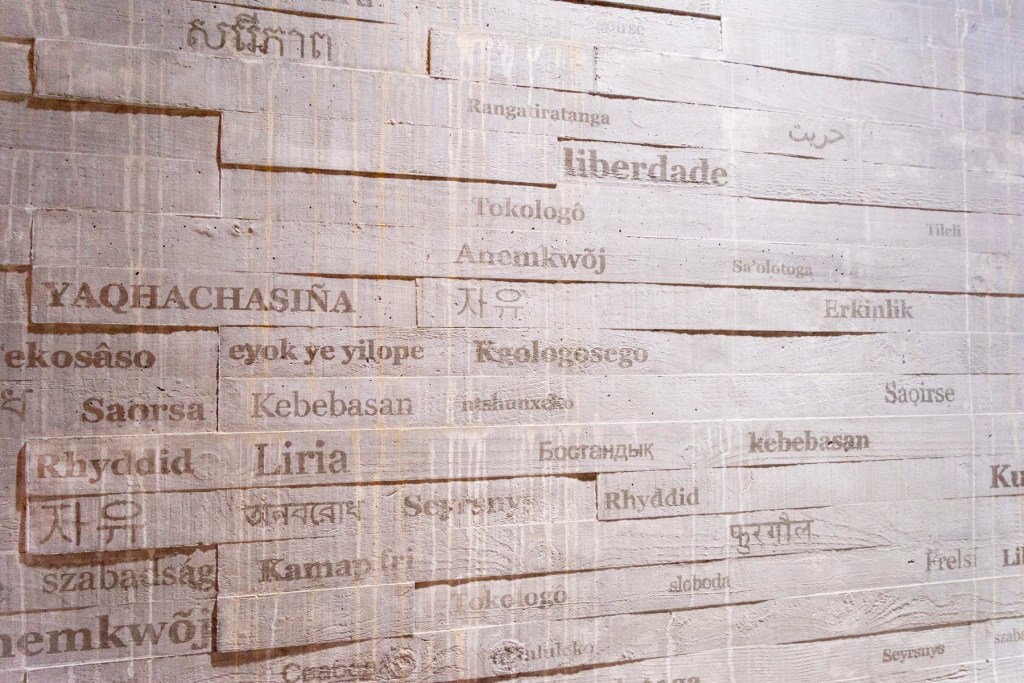 សេរីភាព
Rangatiratanga
حریت
liberdade
Tokologô
Tileli
Anemkwõj
Sa'olotoga
YAQHACHASIÑA
자유
Erkinlik
ekosâso
eyok ye yilope
Kgologosego
Saorsa
Kebebasan
ntshunxeko
Saoirse
Rhyddid
Liria
Бостандық
kebebasan
Ku
자유
অনবরোধ
Seyrsnys
Rhyddid
फुरगौल
szabadság
Kamap fri
Tokologo
sloboda
Frelsi
nemkwõj
Seyrsnys